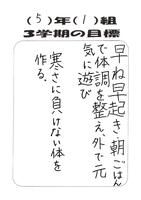 (5)年(1)組
3学期の目標
早ね早起き・朝ごはん
で体調を整え、外で元
気に遊び
寒さに負けない体を
作る。